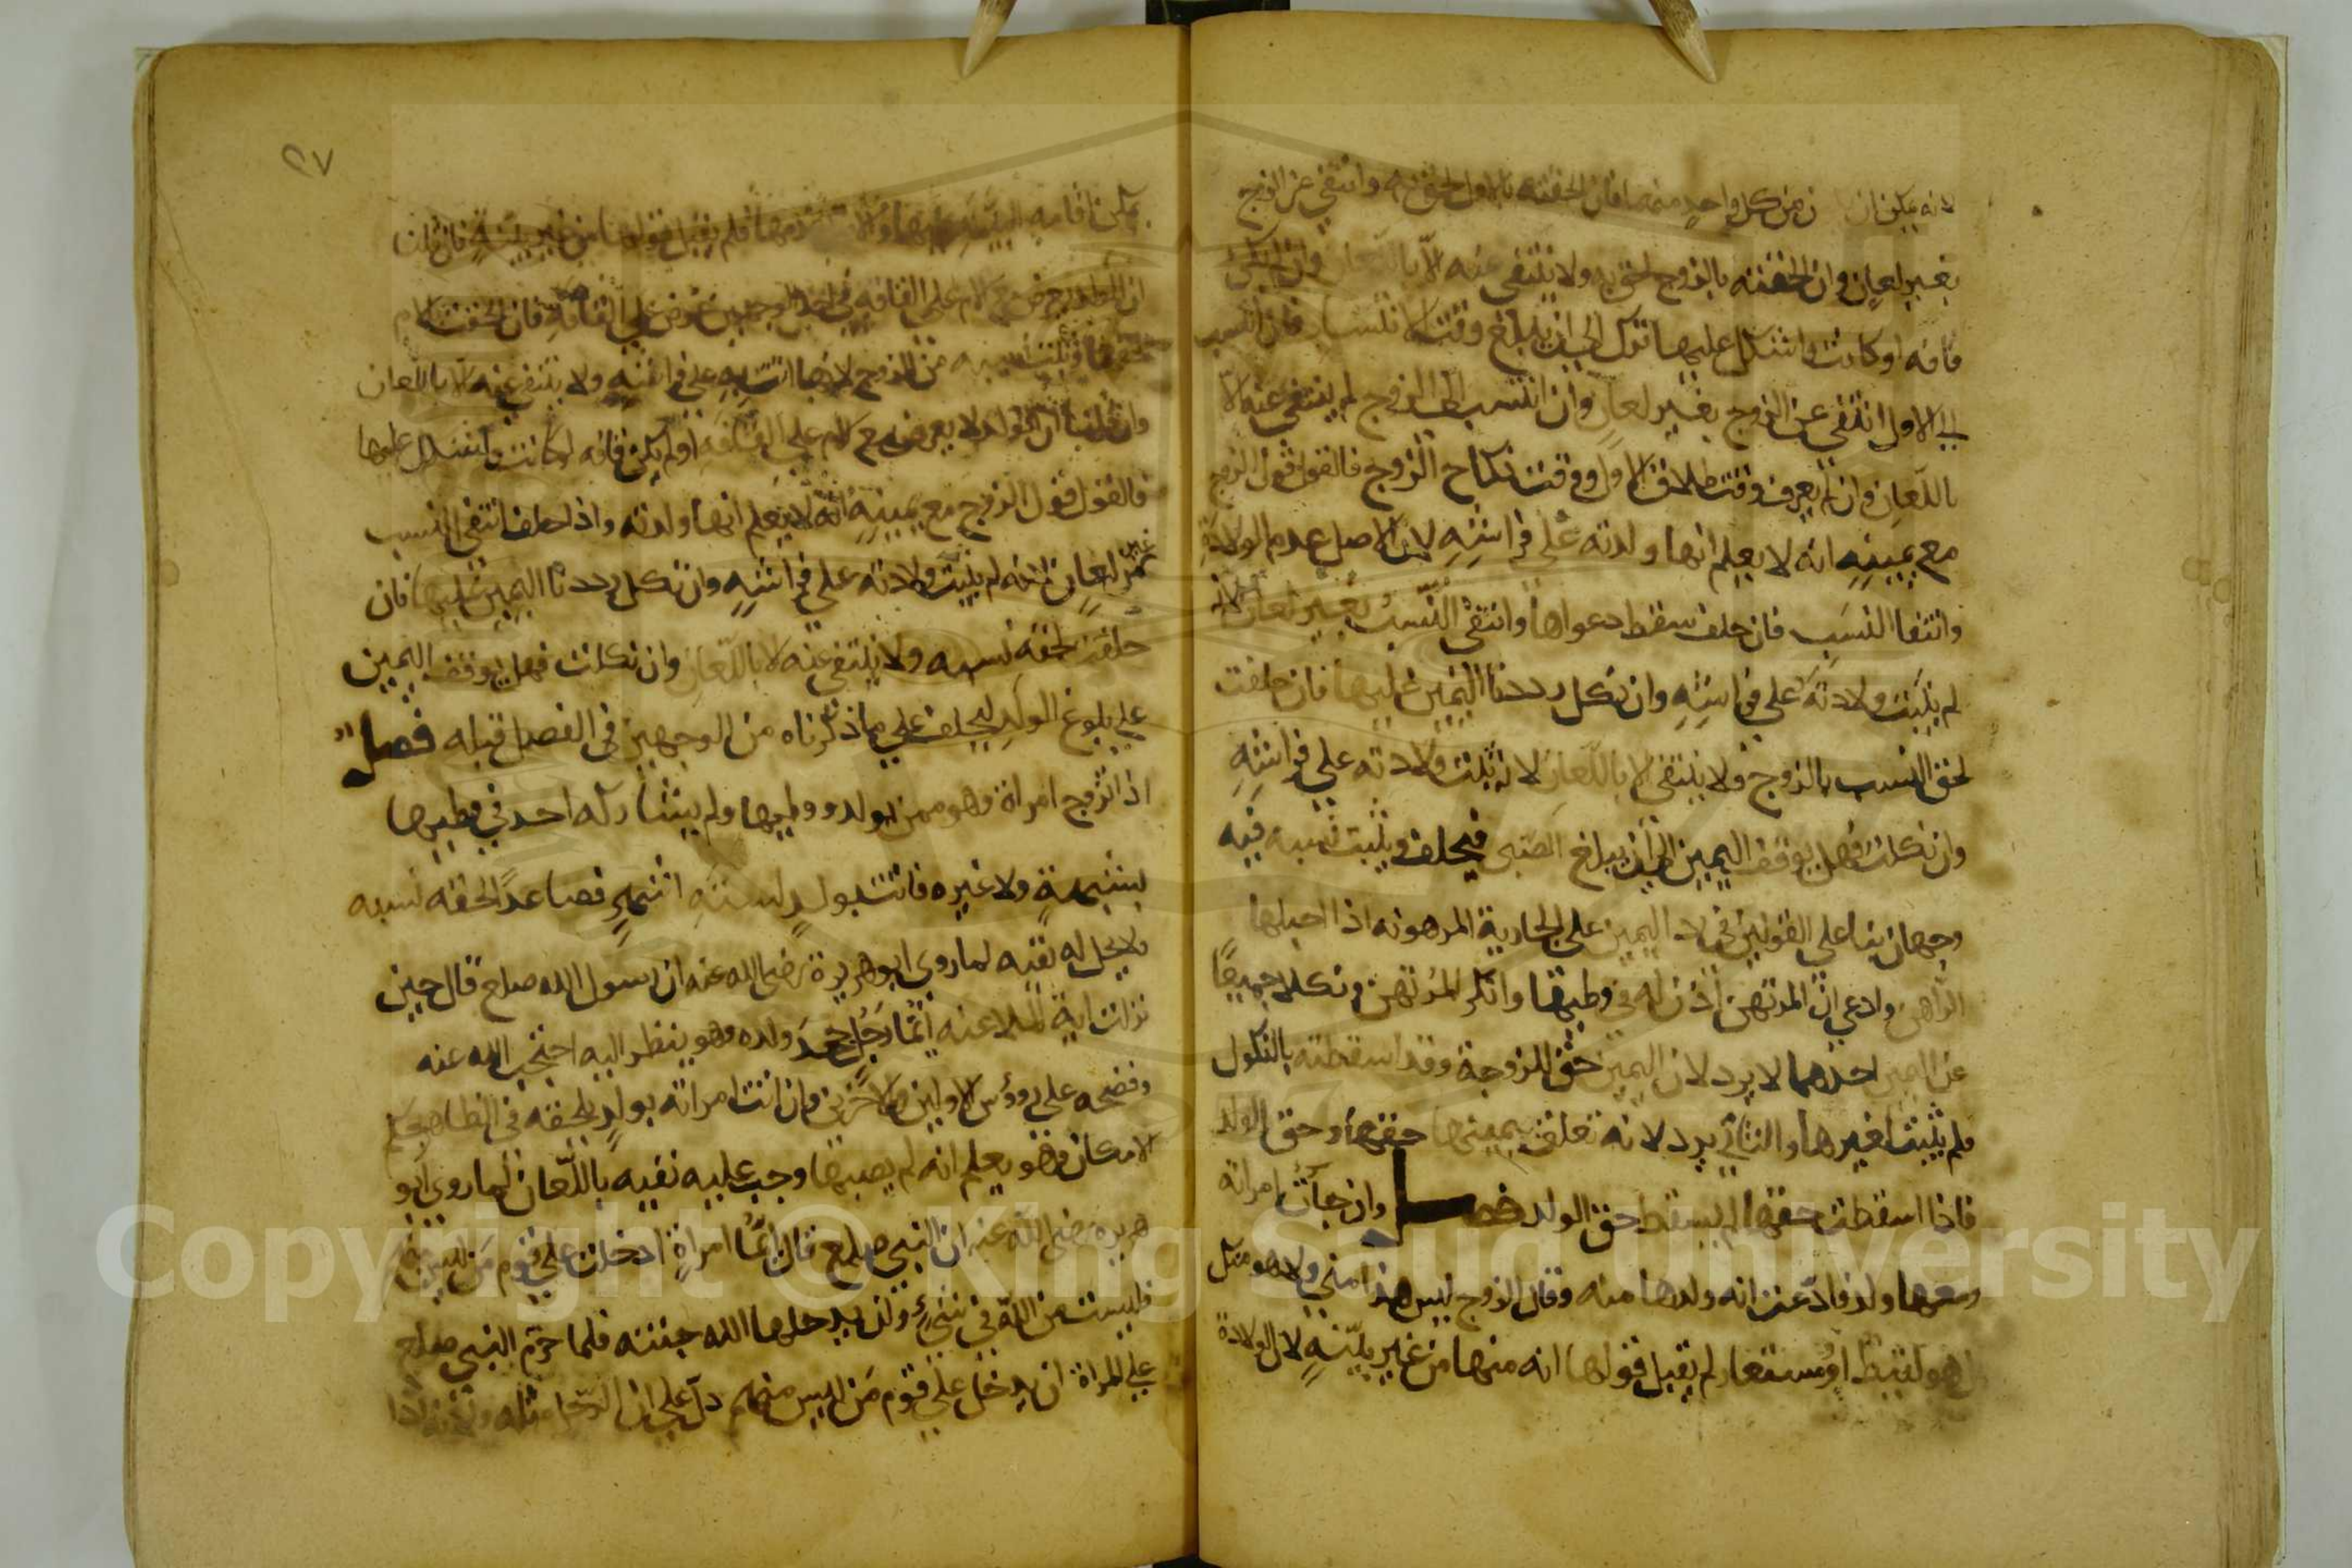 لانه يمكن ان من كل واحد منهما فان الحقته بالاول لحق به وانتفي عن الزوج
بغير لعان وان الحقته بالزوج لحق به ولا ينتفي عنه الا باللعان وان لم يكن
قافه او كانت واشكل عليها ترك الي ان يبلغ وقت الانتساب فان انتسب
الي الاول انتفي عن الزوج بغير لعان وان انتسب الي الزوج لم ينتفي عنه الا
باللعان وان لم يعرف وقت طلاق الاول ووقت نكاح الزوج فالقول قول الزوج
مع يمينه انه لا يعلم انها ولدته علي فراشه لان الاصل عدم الولادة
وانتفا النسب فان حلف سقط دعواها وانتفي النسب بغير لعان لانه
لم يثبت ولادته علي فراشه وان نكل رددنا اليمين عليها فان حلفت
لحق النسب بالزوج ولا ينتفي الا باللعان لانه ثبت ولادته علي فراشه
وان نكلت فهل يوقف اليمين الي ان يبلغ الصبي فيحلف ويثبت نسبه فيه
وجهان بنا علي القولين في رد اليمين علي الجارية المرهونه اذا احبلها
الراهن وادعي ان المرتهن اذن له في وطيها وانكر المرتهن ونكلا جميعا
عن اليمين احدهما لا يرد لان اليمين حق للزوجة وقد اسقطته بالنكول
فلم يثبت لغيرها والثاني يرد لانه تعلق بيمينها حقها وحق الولد
فاذا اسقطت حقها لم يسقط حق الولد فصل وان جآت امراته
ومعها ولد فادعت انه ولدها منه وقال الزوج ليس هذا مني ولا هو منك
بل هو لقيط او مستعار لم يقبل قولها انه منها من غير بينه لان الولادة
يمكن اقامه البينه عليها فلم يقبل قولها من غير بينه فان قلنا
ان الولد يعرض مع الام علي القافه في احد الوجهين عرض علي القافه فان الحقت بالام
لحق بها وثبت نسبه من الزوج لانها اتت به علي فراشه ولا ينتفي عنه الا باللعان
وان قلنا ان الولد لا يعرض مع الام علي القافه او لم يكن قافه او كانت واشكل عليها
فالقول قول الزوج مع يمينه انه لا يعلم انها ولدته واذا حلف انتفي النسب
من غير لعان لانه لم يثبت ولادته علي فراشه وان نكل رددنا اليمين عليها فان
حلفت لحقه نسبه ولا ينتفي عنه الا باللعان وان نكلت فهل يوقف اليمين
علي بلوغ الولد ليحلف علي ما ذكرناه من الوجهين في الفصل قبله فصل
اذا تزوج امراة وهو ممن يولد ووطيها ولم يشاركه احد في وطيها
بشبهة ولا غيره فاتت بولد لستة اشهر فصاعدا لحقه نسبه
ولا يحل له نفيه لما روي ابو هريرة رضي الله عنه ان رسول الله صلع قال حين
نزلت اية الملاعنه ايما رجل جحد ولده وهو ينظر اليه احتجب الله عنه
وفضحه علي رووس الاولين والاخرين وان اتت امراته بولد يلحقه في الظاهر بحكم
الامكان وهو يعلم انه لم يصبها وجب عليه نفيه باللعان لما روي ابو
هريره رضي الله عنه ان النبي صلع قال ايما امراة ادخلت علي قوم من ليس منهم
فليست من الله في شيء ولن يدخلها الله جنته فلما حرم النبي صلع
علي المراة ان يدخل علي قوم من ليس منهم دل علي ان الرجل مثله
٩٧
Copyright © King Saud University